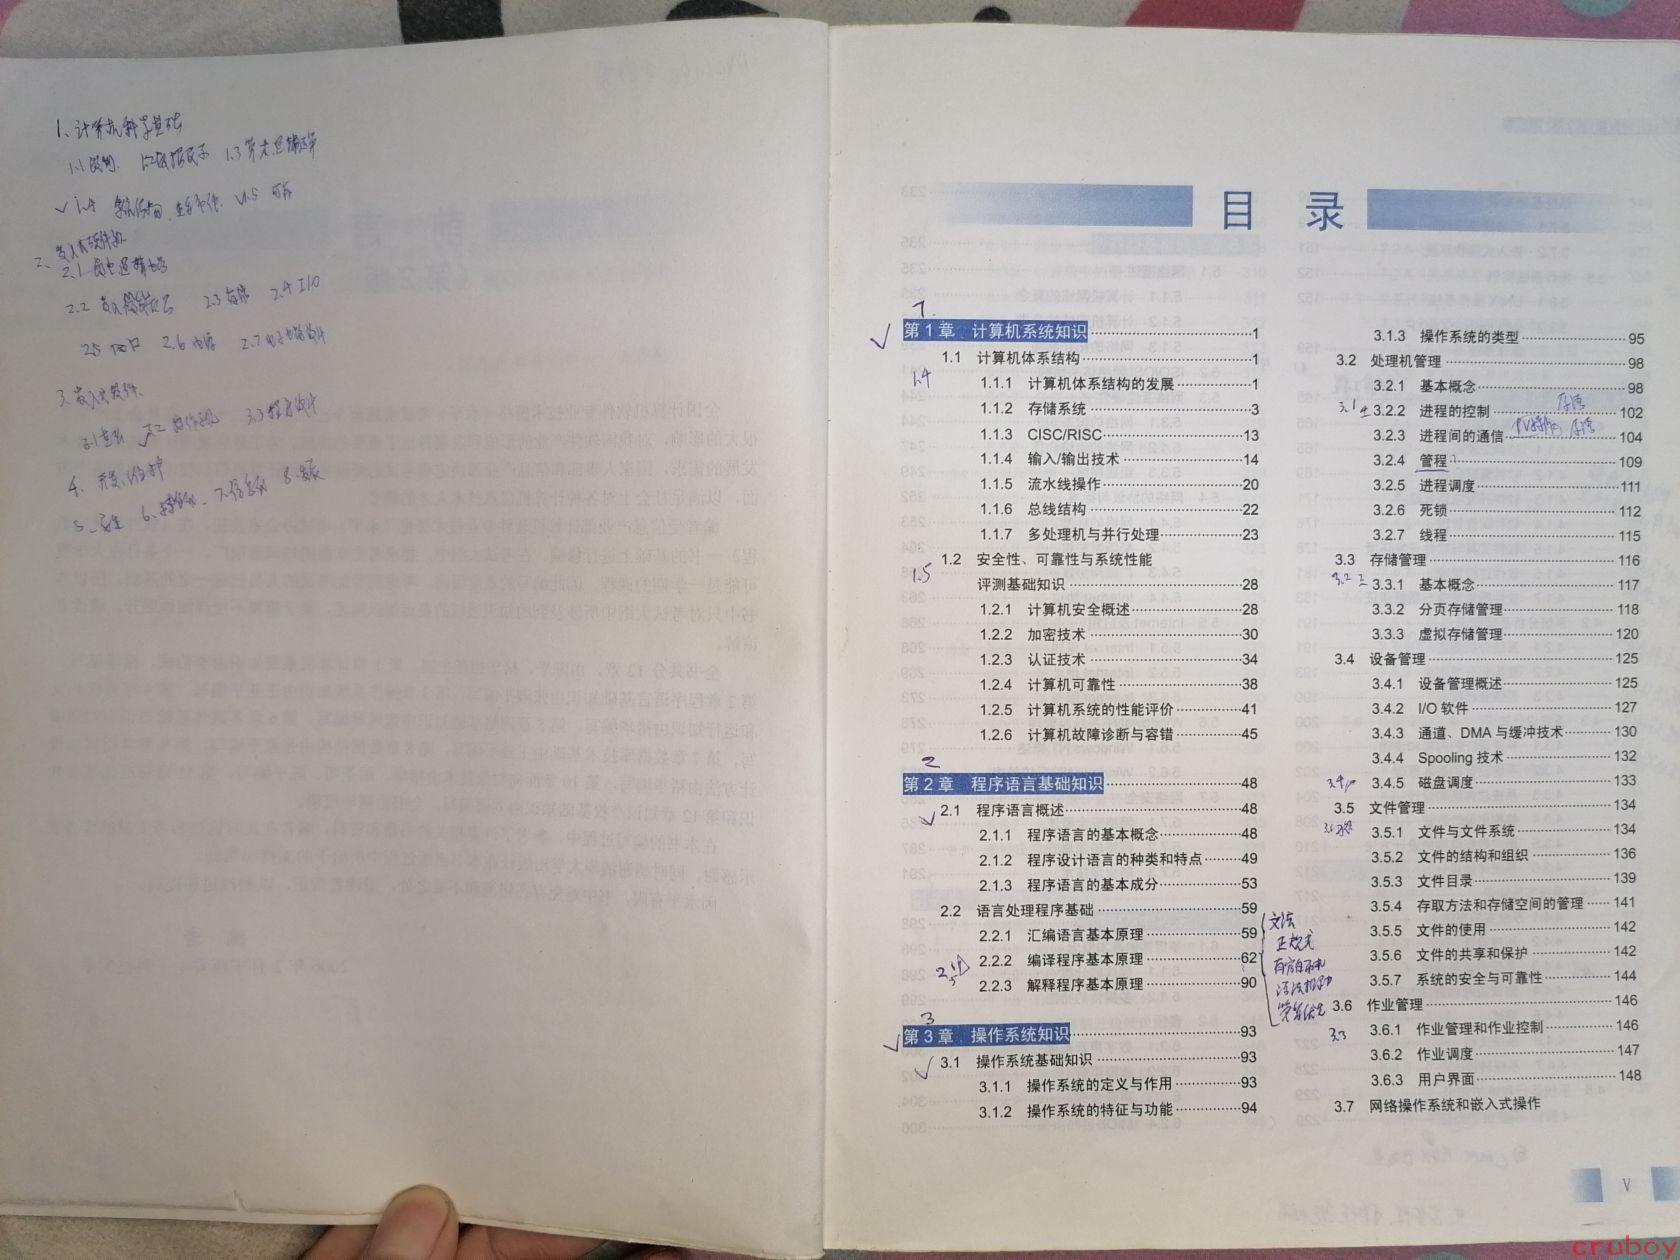 1、计算机科学基础
1.1 数制 1.2 数据表示 1.3 算术逻辑运算
✓ 1.4 ✓1.5 可靠
2、嵌入式硬件
2.1
2.2 2.3 存储 2.4 I/O
2.5 接口 2.6 电源 2.7 电子电路设计
3、嵌入式软件
3.1 3.2 操作系统 3.3 程序设计
4. 开发、维护
5. 安全 6. 标准化 7. 信息化 8. 发展
目 录
第 1 章 计算机系统知识 1
1.1 计算机体系结构 1
1.4
1.1.1 计算机体系结构的发展 1
1.1.2 存储系统 3
1.1.3 CISC/RISC 13
1.1.4 输入/输出技术 14
1.1.5 流水线操作 20
1.1.6 总线结构 22
1.1.7 多处理机与并行处理 23
1.2 安全性、可靠性与系统性能
1.5
评测基础知识 28
1.2.1 计算机安全概述 28
1.2.2 加密技术 30
1.2.3 认证技术 34
1.2.4 计算机可靠性 38
1.2.5 计算机系统的性能评价 41
1.2.6 计算机故障诊断与容错 45
2
第 2 章 程序语言基础知识 48
2.1 程序语言概述 48
2.1.1 程序语言的基本概念 48
2.1.2 程序设计语言的种类和特点 49
2.1.3 程序语言的基本成分 53
2.2 语言处理程序基础 59
2.2.1 汇编语言基本原理 59
2.2.2 编译程序基本原理 62
2.2.3 解释程序基本原理 90
文法
正规式
有穷自动机
语法推导
算符优先
3
第 3 章 操作系统知识 93
3.1 操作系统基础知识 93
3.1.1 操作系统的定义与作用 93
3.1.2 操作系统的特征与功能 94
3.1.3 操作系统的类型 95
3.2 处理机管理 98
3.2.1 基本概念 98
3.2.2 进程的控制 102
3.2.3 进程间的通信 104
PV操作
3.2.4 管程 109
3.2.5 进程调度 111
3.2.6 死锁 112
3.2.7 线程 115
3.3 存储管理 116
3.3.1 基本概念 117
3.3.2 分页存储管理 118
3.3.3 虚拟存储管理 120
3.4 设备管理 125
3.4.1 设备管理概述 125
3.4.2 I/O 软件 127
3.4.3 通道、DMA 与缓冲技术 130
3.4.4 Spooling 技术 132
3.4.5 磁盘调度 133
3.5 文件管理 134
3.5.1 文件与文件系统 134
3.5.2 文件的结构和组织 136
3.5.3 文件目录 139
3.5.4 存取方法和存储空间的管理 141
3.5.5 文件的使用 142
3.5.6 文件的共享和保护 142
3.5.7 系统的安全与可靠性 144
3.6 作业管理 146
3.3
3.6.1 作业管理和作业控制 146
3.6.2 作业调度 147
3.6.3 用户界面 148
3.7 网络操作系统和嵌入式操作
V
cruboy